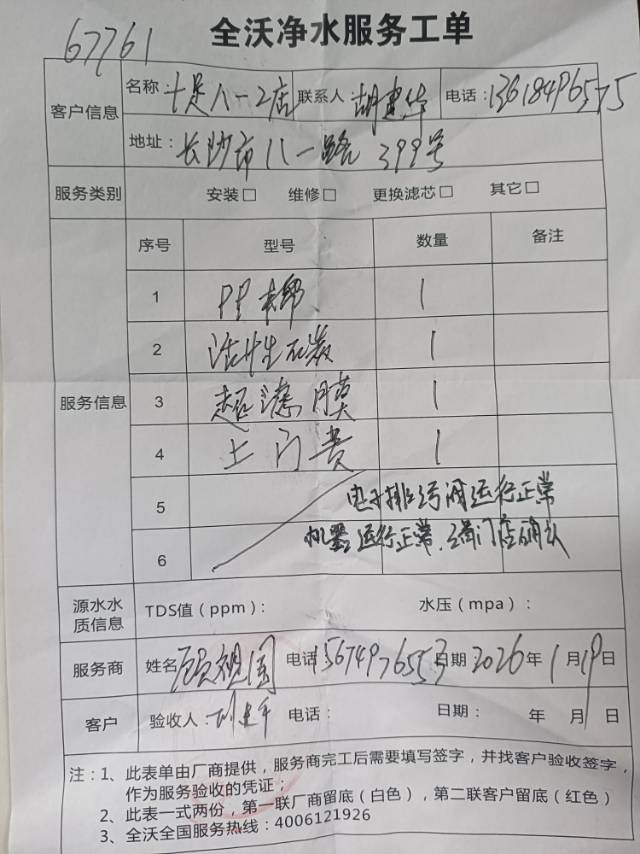 67761
全沃净水服务工单
客户信息 名称 十足八一2店 联系人 胡建华 电话：13618496575
地址：长沙市八一路399号
服务类别 安装□ 维修□ 更换滤芯□ 其它□
服务信息
序号 型号 数量 备注
1 PP棉 1
2 活性炭 1
3 超滤膜 1
4 上门费 1
5 电子排污阀运行正常
6 机器运行正常.请门店确认
源水水质信息 TDS值（ppm）： 水压（mpa）：
服务商 姓名 顾祖国 电话 15674976553 日期 2026年1月19日
客户 验收人： 电话： 日期： 年 月 日
注：1、此表单由厂商提供，服务商完工后需要填写签字，并找客户验收签字，
作为服务验收的凭证；
2、此表一式两份，第一联厂商留底（白色），第二联客户留底（红色）
3、全沃全国服务热线：4006121926